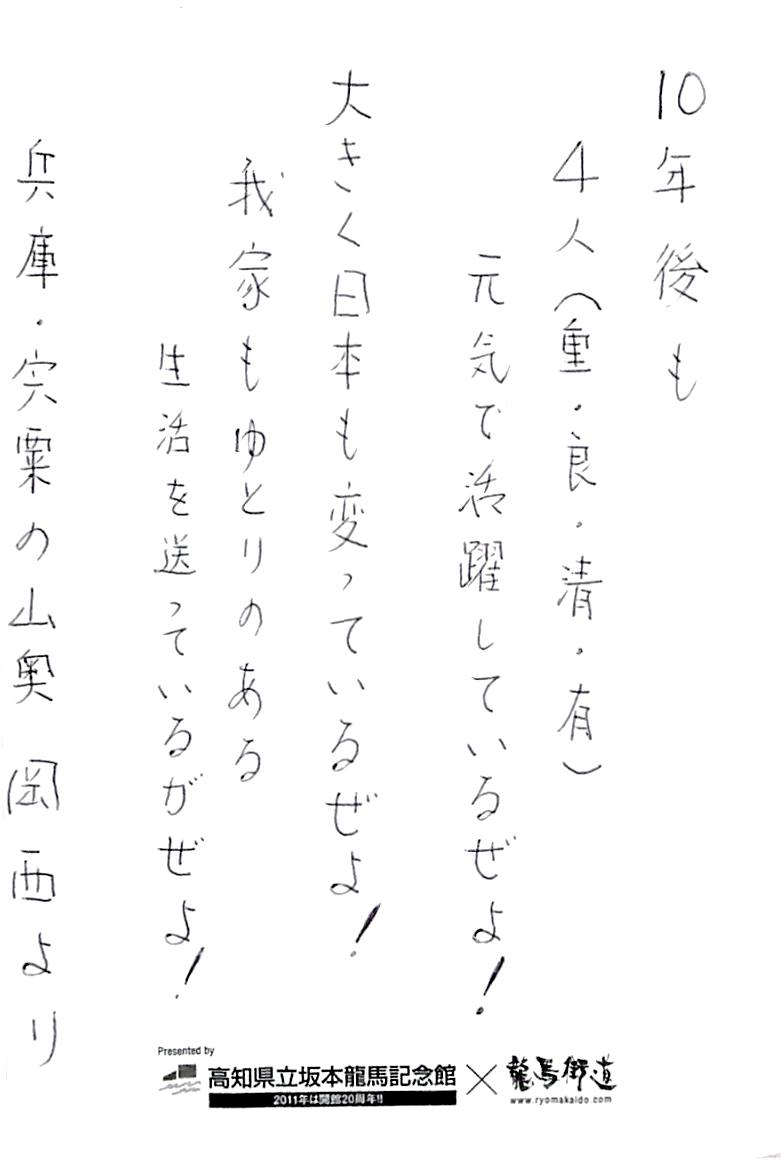 10年後も
4人（重・良・清・有）
元気で活躍しているぜよ！
大きく日本も変っているぜよ！
我家もゆとりのある
生活を送っているがぜよ！
兵庫・宍粟の山奥 岡西より
Presented by
高知県立坂本龍馬記念館×龍馬街道
2011年は開館20周年!!
www.ryomakaido.com